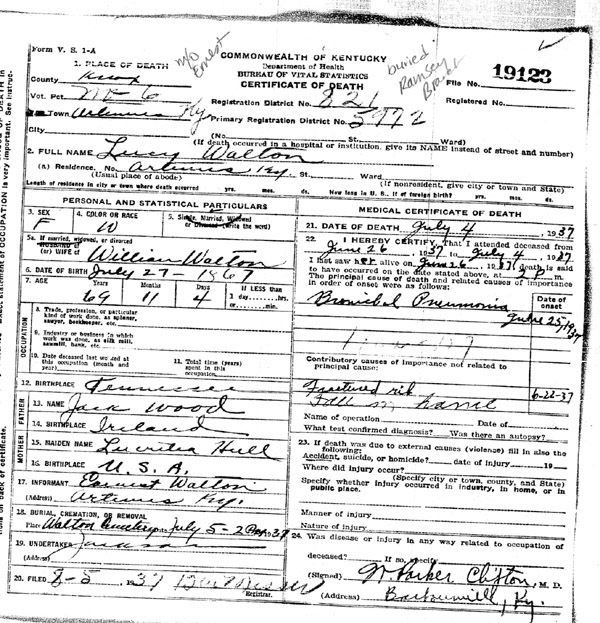 Form V. S. 1-A
COMMONWEALTH OF KENTUCKY
Department of Health
BUREAU OF VITAL STATISTICS
CERTIFICATE OF DEATH
m/o Ernest
buried Ramsey
File No. 19123
Registered No.
1. PLACE OF DEATH
County Knox
Vot. Pct.
Registration District No. 821
Town Artemus Ky
Primary Registration District No. 5972
City (No. St. Ward)
(If death occurred in a hospital or institution, give its NAME instead of street and number)
2. FULL NAME Lucy Walton
(a) Residence. No. Artemus Ky.
(Usual place of abode)
(If nonresident, give city or town and State)
Length of residence in city or town where death occurred yrs. mos. ds. How long in U. S., if of foreign birth? yrs. mos. ds.
PERSONAL AND STATISTICAL PARTICULARS
3. SEX F
4. COLOR OR RACE W
5. Single, Married, Widowed or Divorced (write the word)
5a. If married, widowed, or divorced
HUSBAND of
(or) WIFE of William Walton
6. DATE OF BIRTH July 27 1867
7. AGE Years Months Days If LESS than
69 11 4 1 day hrs. or min.
OCCUPATION
8. Trade, profession, or particular kind of work done, as spinner, sawyer, bookkeeper, etc.
9. Industry or business in which work was done, as silk mill, sawmill, bank, etc.
10. Date deceased last worked at this occupation (month and year)
11. Total time (years) spent in this occupation
12. BIRTHPLACE Tennessee
FATHER
13. NAME Jack Wood
14. BIRTHPLACE Ireland
MOTHER
15. MAIDEN NAME Lucritia Hull
16. BIRTHPLACE U. S. A.
17. INFORMANT Earnest Walton
(Address) Artemus Ky.
18. BURIAL, CREMATION, OR REMOVAL
Place Walton Cemetery July 5-
19. UNDERTAKER Jackson
(Address)
20. FILED 8-5 1937
Registrar.
MEDICAL CERTIFICATE OF DEATH
21. DATE OF DEATH July 4, 1937
22. I HEREBY CERTIFY, That I attended deceased from
June 26 1937 to July 4, 1937
I last saw her alive on June 26, 1937 death is said
to have occurred on the date stated above, at 2 P m.
The principal cause of death and related causes of importance
in order of onset were as follows:
Date of onset
Bronchial Pneumonia June 25, 1937
Contributory causes of importance not related to
principal cause:
Fractured rib 6-26-37
Fall at home
Name of operation Date of
What test confirmed diagnosis? Was there an autopsy?
23. If death was due to external causes (violence) fill in also the
following:
Accident, suicide, or homicide? date of injury 19
Where did injury occur?
(Specify city or town, county, and State)
Specify whether injury occurred in industry, in home, or in
public place.
Manner of injury
Nature of injury
24. Was disease or injury in any way related to occupation of
deceased? If so, specify
(Signed) W. Parker Clifton, M. D.
(Address) Barbourville, Ky.